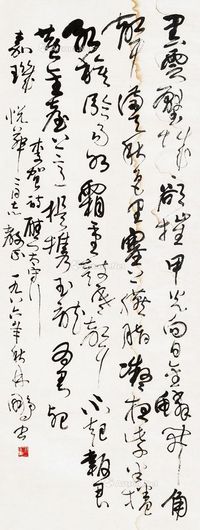 黑雲壓城城欲摧甲光向日金鱗開角
聲滿天秋色里塞上臙脂凝夜紫半捲
紅旗臨易水霜重鼓寒聲不起報君
黃金臺上意提携玉龍為君死
李賀詩雁門太守行
悅華二同志教正一九八六年秋林鵬書